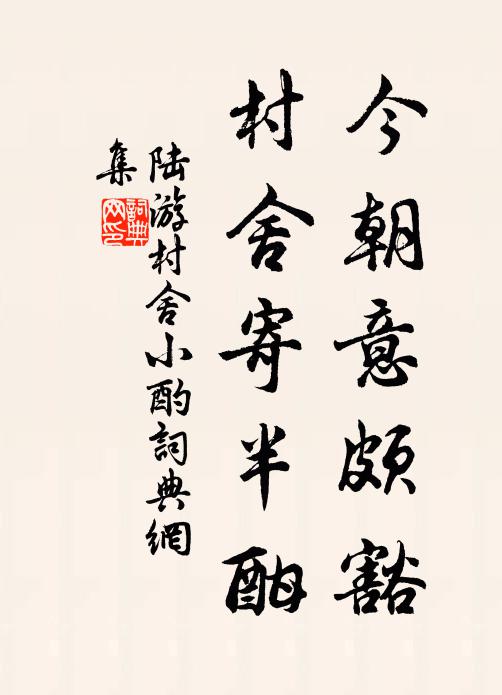 今朝意頗豁
村舍寄半酣
陆游村舍小酌詞典網
集
詞典網印